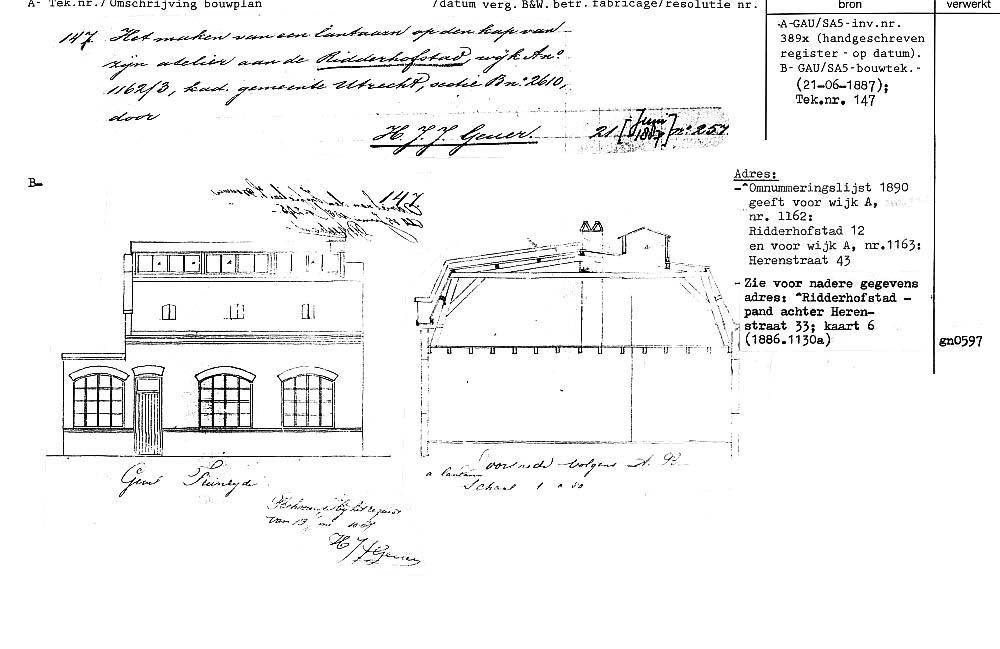 A- Tek.nr./Omschrijving bouwplan /datum verg. B&W.betr.fabricage/resolutie nr. bron verwerkt
147. Het maken van een lantaarn op den kap van
zijn atelier aan de Ridderhofstad, wijk A no.
1162/3, kad. gemeente Utrecht, sectie B no. 2610,
door
H. J. J. Geuer. 21 [Juni 1887] no. 257
A-GAU/SA5-inv.nr.
389x (handgeschreven
register - op datum).
B- GAU/SA5-bouwtek.-
(21-06-1887);
Tek.nr. 147
B-
147
Adres:
-^Omnummeringslijst 1890
geeft voor wijk A,
nr. 1162:
Ridderhofstad 12
en voor wijk A, nr.1163:
Herenstraat 43
- Zie voor nadere gegevens
adres: ^Ridderhofstad -
pand achter Heren-
straat 33; kaart 6
(1886.1130a)
gn0597
Gevel Tuinzijde
a lantaarn
Doorsnede volgens A. B.
Schaal 1 a 50
H J J Geuer